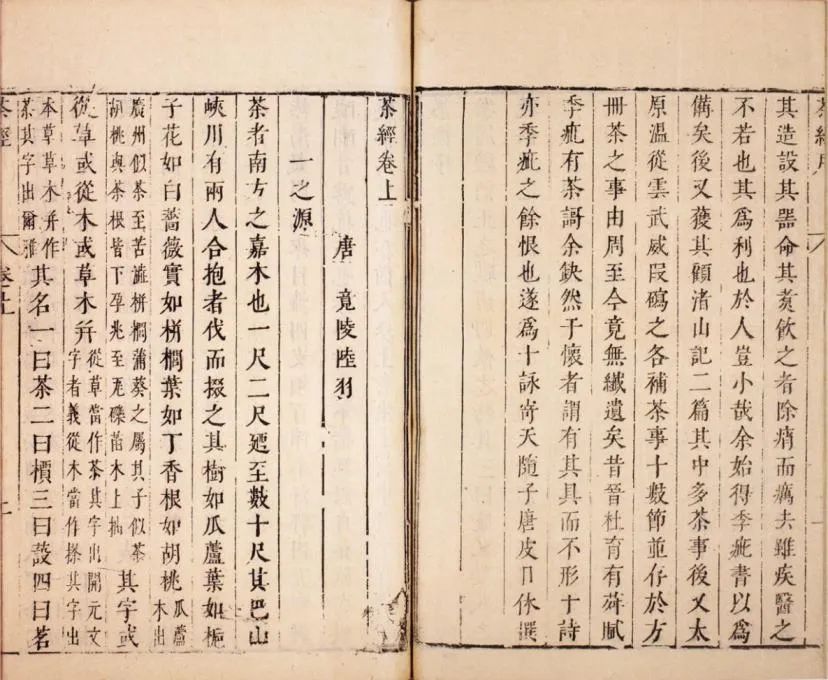 其造設其器命其煑飲之者除痟而癘去雖疾醫之
不若也其爲利也於人豈小哉余始得季疵書以爲
備矣後又獲其顧渚山記二篇其中多茶事後又太
原溫從雲武威段碣之各補茶事十數節並存於方
冊茶之事由周至今竟無纖遺矣昔晉杜育有荈賦
季疵有茶謌余缺然于懷者謂有其具而不形于詩
亦季疵之餘恨也遂爲十詠寄天隨子唐皮日休譔
茶經卷上
唐 竟陵陸羽
一之源
茶者南方之嘉木也一尺二尺廼至數十尺其巴山
峽川有兩人合抱者伐而掇之其樹如瓜蘆葉如梔
子花如白薔薇實如栟櫚葉如丁香根如胡桃瓜蘆木出
廣州似茶至苦澁栟櫚蒲葵之屬其子似茶胡桃與茶根皆下孕兆至瓦礫苗木上抽其字或
從草或從木或草木幷從草當作茶其字出開元文字者義從木當作搽其字出
本草草木幷作荼其字出爾雅其名一曰茶二曰檟三曰蔎四曰茗
茶經
卷上